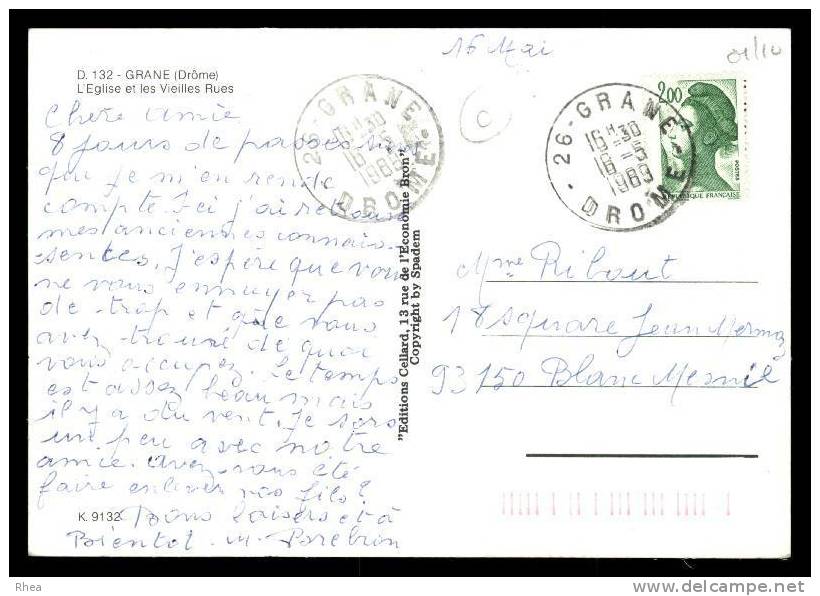 16 Mai
01/10
D. 132 - GRANE (Drôme)
L'Eglise et les Vieilles Rues
C
26 - GRANE
16 H 30
16 - 5
1989
DROME
26 - GRANE
16 H 30
16 - 5
1989
DROME
2,00
POSTES
REPUBLIQUE FRANÇAISE
Chere amie
8 jours de passés sans
que je m'en rende
compte Ici j'ai retrouvé
mes anciennes connais-
sances. J'espère que vous
ne vous ennuyer pas
de trop et que vous
avez trouvé de quoi
vous occupez. Le temps
est assez beau mais
il y a du vent. Je sors
un peu avec notre
amie. avez-vous été
faire enlever vos fils?
Bons baisers et à
Bientot. M.
K. 9132
"Editions Cellard, 13 rue de l'Economie Bron"
Copyright by Spadem
Mme Ribout
18 square Jean Mermoz
93150 Blanc Mesnil
Rhea
www.delcampe.net